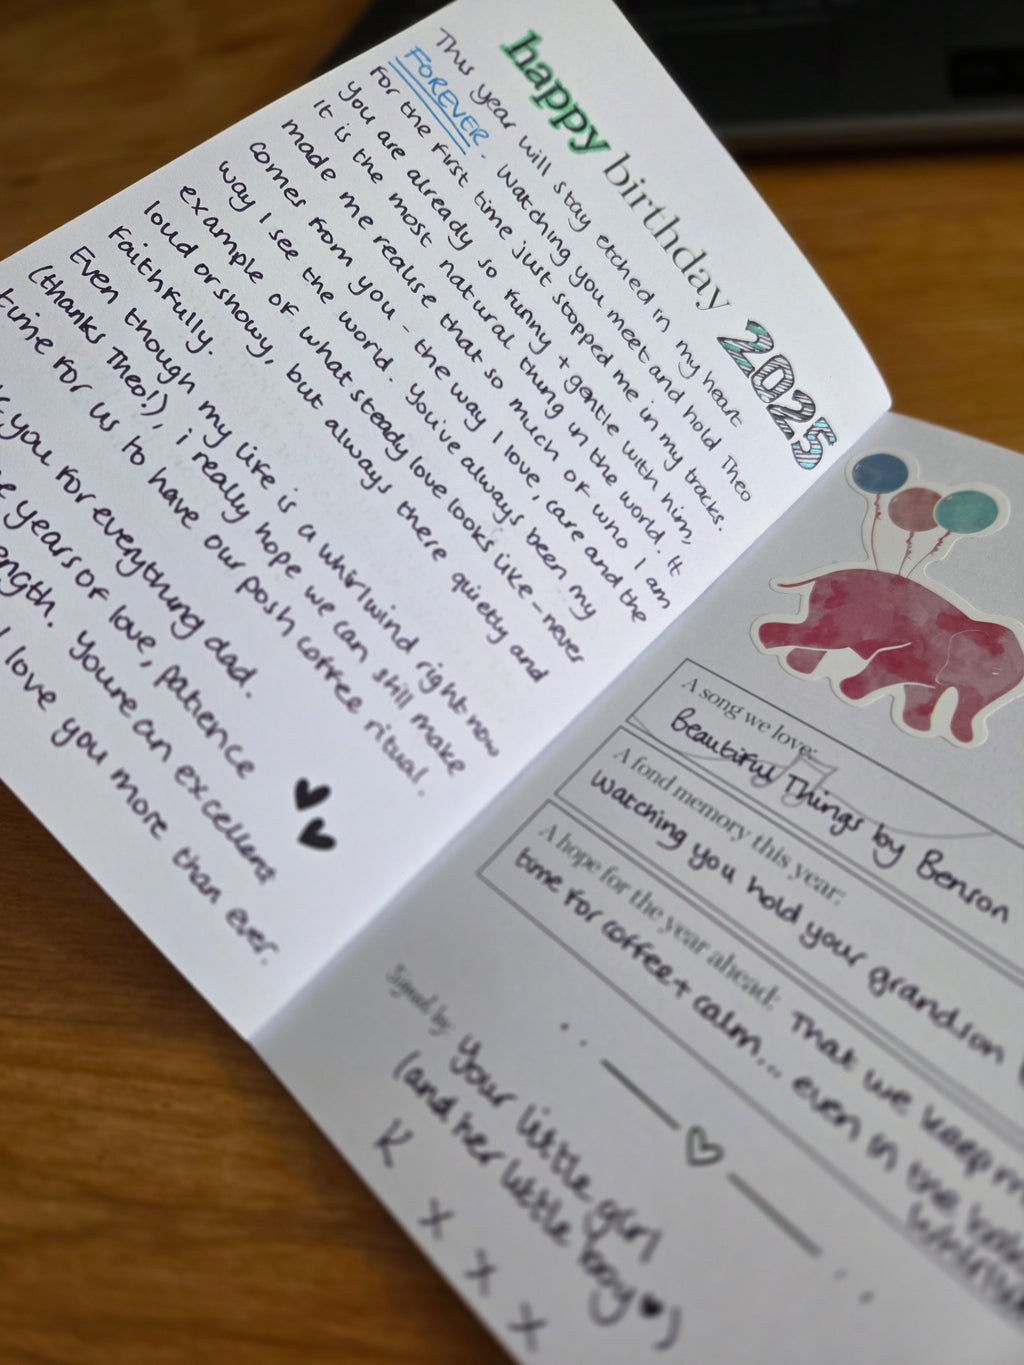 happy birthday 2025
This year will stay etched in my heart
FOREVER. Watching you meet and hold Theo
for the first time just stopped me in my tracks.
You are already so funny + gentle with him,
it is the most natural thing in the world. It
made me realise that so much of who I am
comes from you - the way I love, care and the
way I see the world. You've always been my
example of what steady love looks like - never
loud or showy, but always there quietly and
faithfully.
Even though my life is a whirlwind right now
(thanks Theo!), i really hope we can still make
time for us to have our posh coffee ritual.
you for everything dad.
years of love, patience
You're an excellent
love you more than ever.
A song we love:
Beautiful Things by Benson
A fond memory this year:
Watching you hold your grandson
A hope for the year ahead: That we keep
time for coffee + calm... even in the
Signed by:
Your little girl
(and her little boy ♥)
K
x
x
x